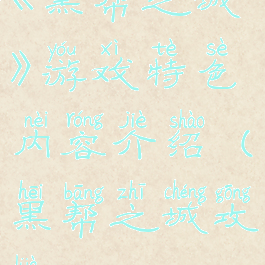 《黑帮之城
》游戏特色
yóu xì tè sè
内容介绍（
nèi róng jiè shào
黑帮之城攻
hēi bāng zhī chéng gōng